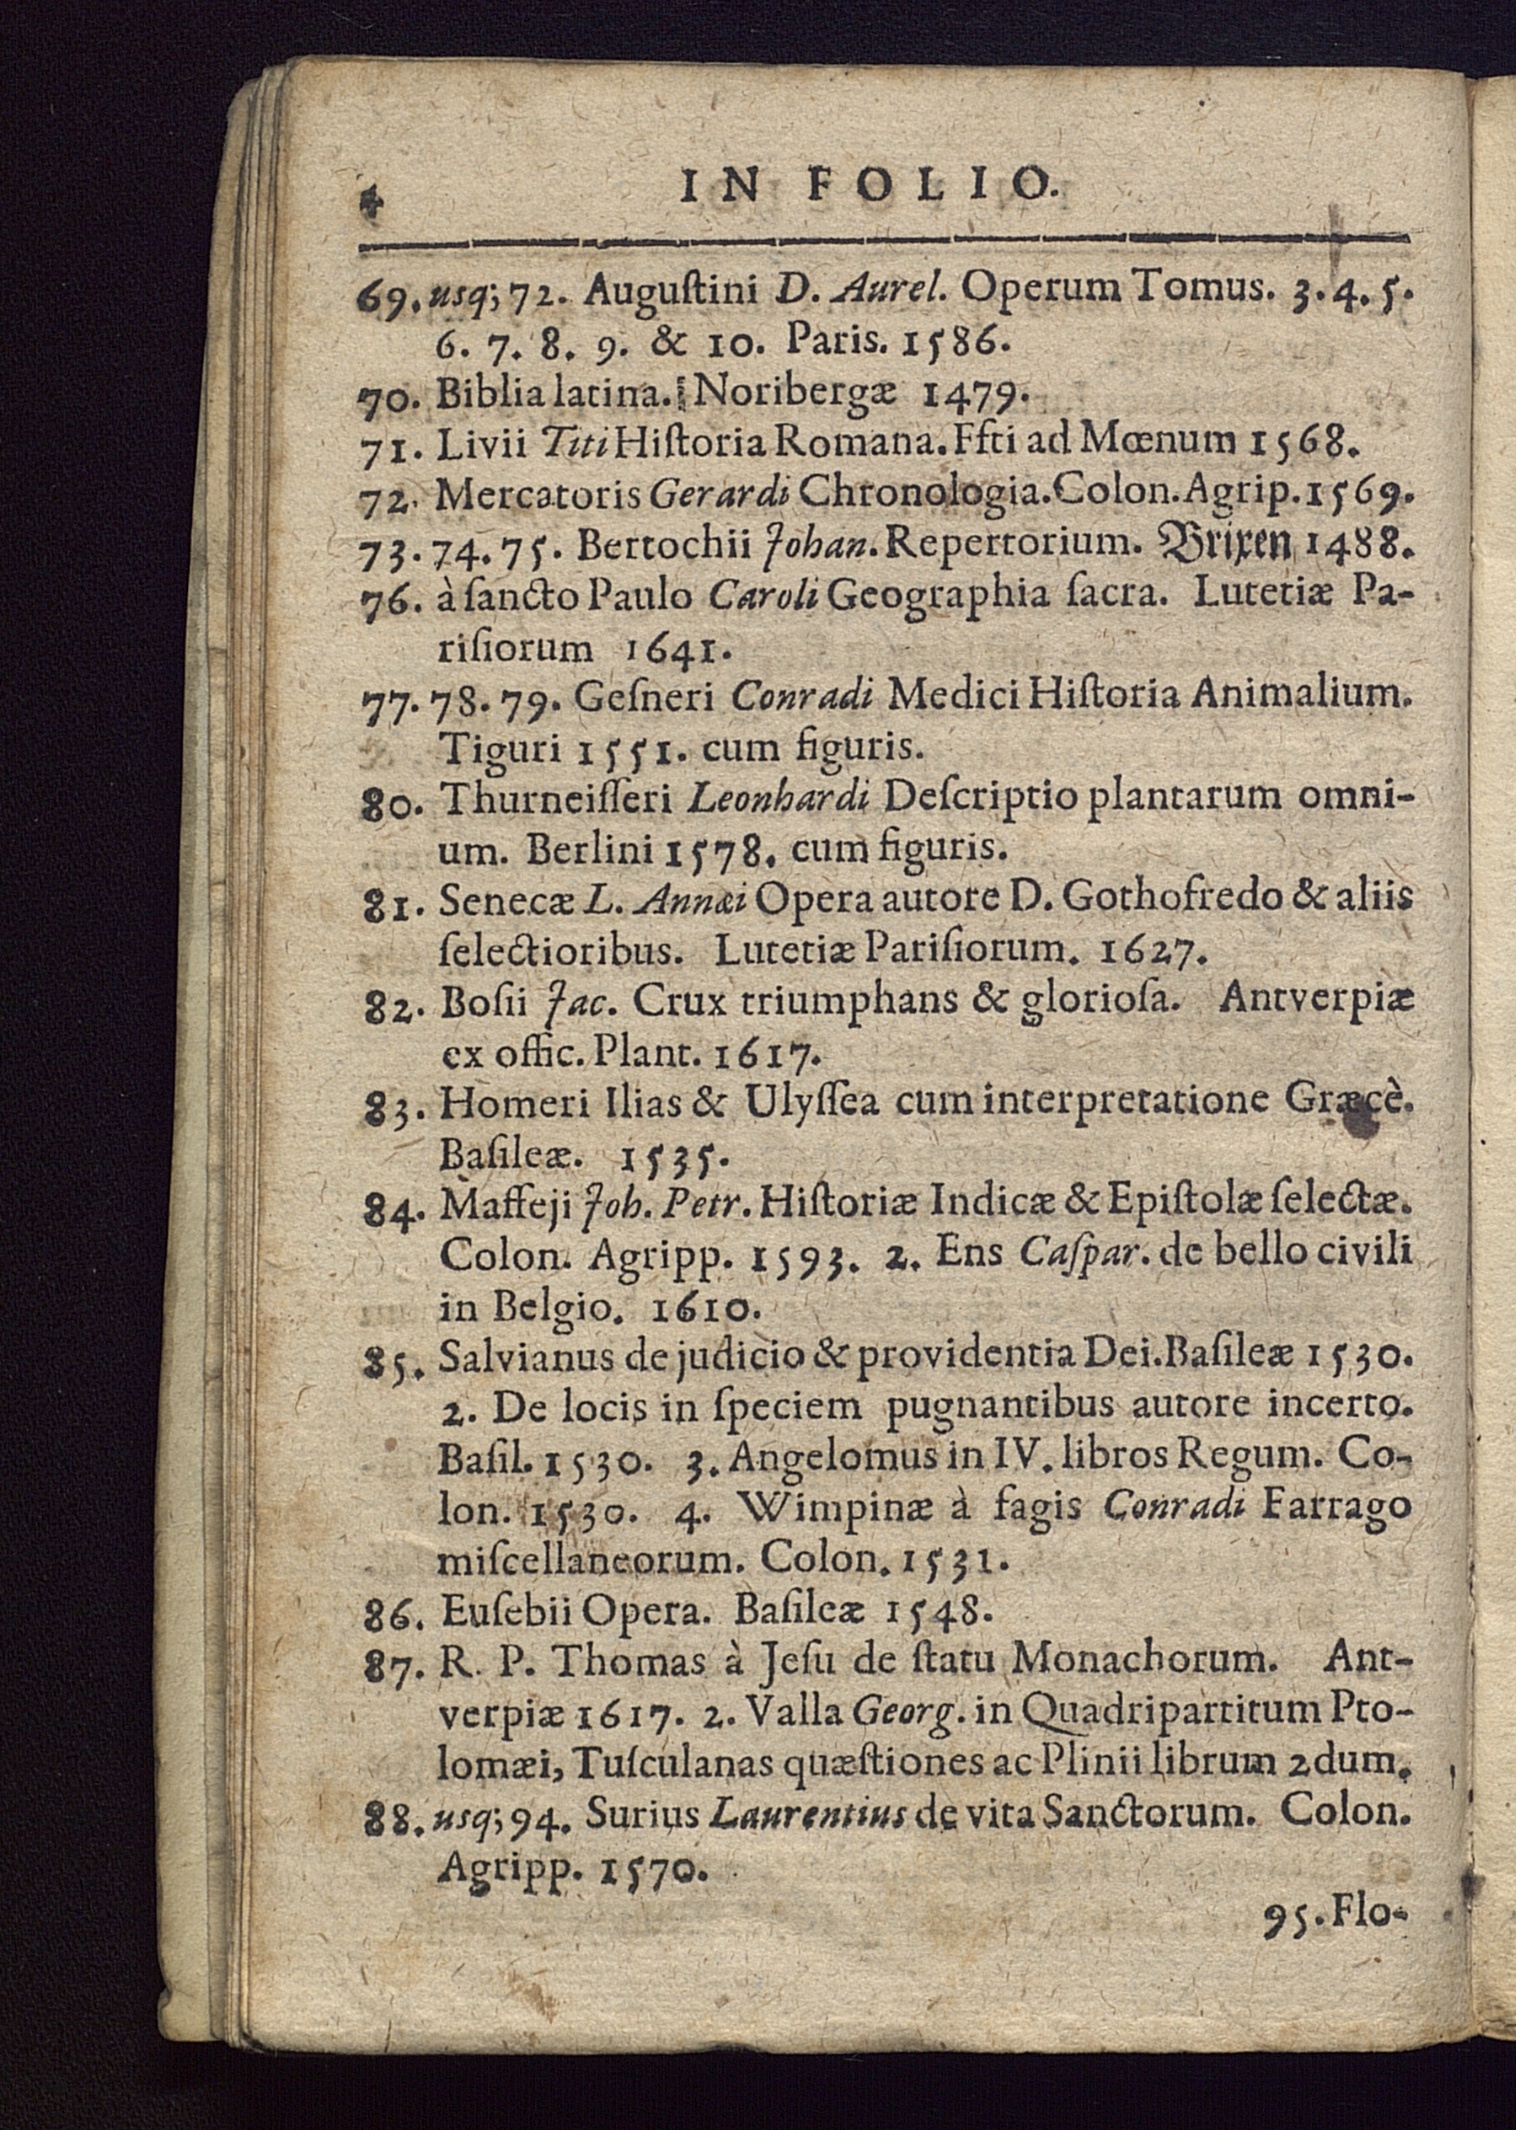 4 IN FOLIO.
69. usq; 72. Auguſtini D. Aurel. Operum Tomus. 3. 4. 5.
6. 7. 8. 9. & 10. Paris. 1586.
70. Biblia latina. Noribergæ 1479.
71. Livii Titi Hiſtoria Romana. Ffti ad Mœnum 1568.
72. Mercatoris Gerardi Chronologia. Colon. Agrip. 1569.
73. 74. 75. Bertochii Johan. Repertorium. Brixen 1488.
76. à ſancto Paulo Caroli Geographia ſacra. Lutetiæ Pa-
riſiorum 1641.
77. 78. 79. Geſneri Conradi Medici Hiſtoria Animalium.
Tiguri 1551. cum figuris.
80. Thurneiſſeri Leonhardi Deſcriptio plantarum omni-
um. Berlini 1578. cum figuris.
81. Senecæ L. Annæi Opera autore D. Gothofredo & aliis
ſelectioribus. Lutetiæ Pariſiorum. 1627.
82. Boſii Jac. Crux triumphans & glorioſa. Antverpiæ
ex offic. Plant. 1617.
83. Homeri Ilias & Ulyſſea cum interpretatione Græcè.
Baſileæ. 1535.
84. Maffeji Joh. Petr. Hiſtoriæ Indicæ & Epiſtolæ ſelectæ.
Colon. Agripp. 1593. 2. Ens Caſpar. de bello civili
in Belgio. 1610.
85. Salvianus de judicio & providentia Dei. Baſileæ 1530.
2. De locis in ſpeciem pugnantibus autore incerto.
Baſil. 1530. 3. Angelomus in IV. libros Regum. Co-
lon. 1530. 4. Wimpinæ à fagis Conradi Farrago
miſcellaneorum. Colon. 1531.
86. Euſebii Opera. Baſileæ 1548.
87. R. P. Thomas à Jeſu de ſtatu Monachorum. Ant-
verpiæ 1617. 2. Valla Georg. in Quadripartitum Pto-
lomæi, Tuſculanas quæſtiones ac Plinii librum 2dum.
88. usq; 94. Surius Laurentius de vita Sanctorum. Colon.
Agripp. 1570.
95. Flo-